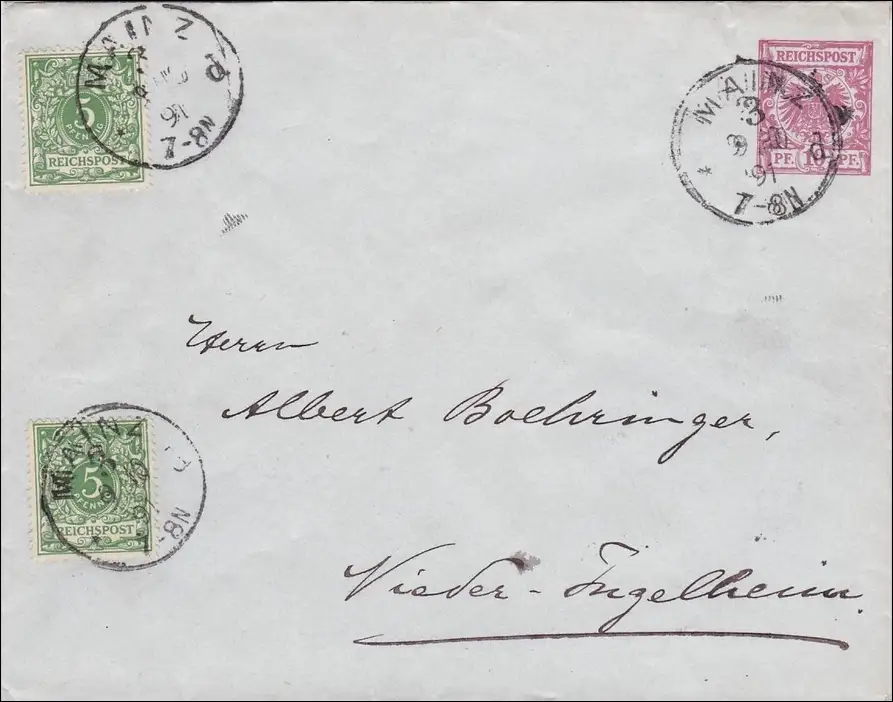 MAINZ
91
7-8N
5
PFENNIG
REICHSPOST
REICHSPOST
PF. 10 PF.
MAINZ
91
7-8N
Herrn
Albert Boehringer,
MAINZ
5
PFENNIG
REICHSPOST
7-8N
Nieder-Ingelheim.